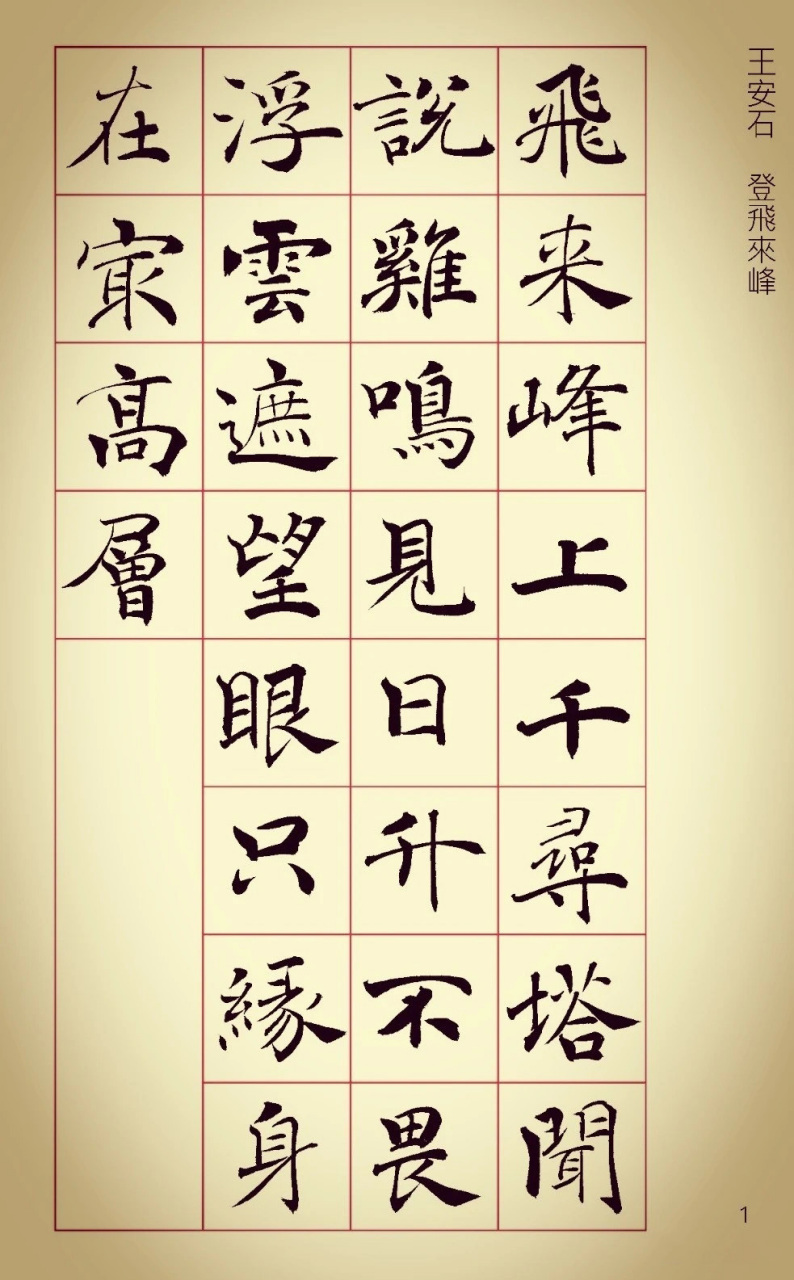 王安石 登飛來峰
飛来峰上千尋塔聞
說雞鳴見日升不畏
浮雲遮望眼只緣身
在㝡高層
1